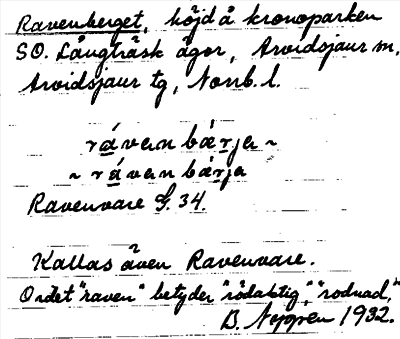 Ravenberget, höjd å kronoparken
SO. Långträsk ägor, Arvidsjaur sn,
Arvidsjaur tg, Norrb. l.
rávan bærja ~
~ rávan bárja
Ravenvare G. 34.
Kallas även Ravenvare.
Ordet "raven" betyder "rödaktig", "rodnad,"
1932.